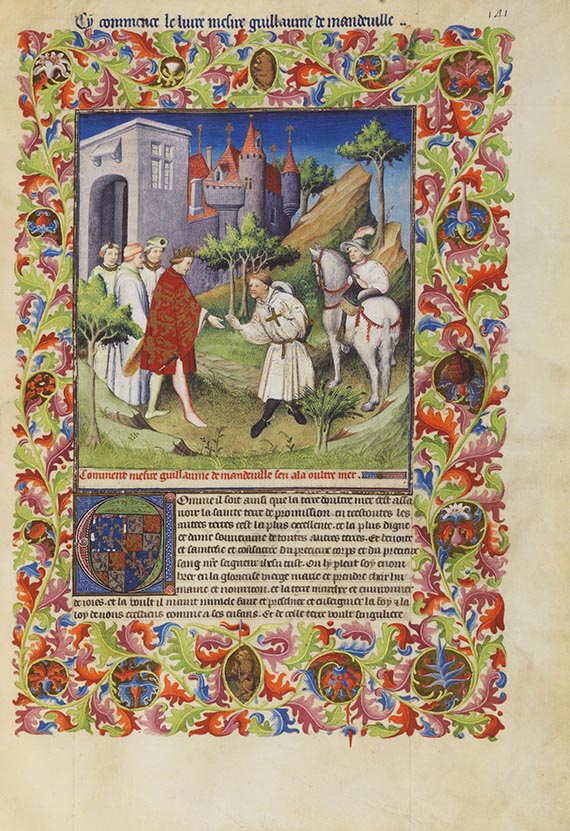 141
Cy commence le livre messire guillaume de mandeville
Comment messire guillaume de mandeville sen ala oultre mer
Comme il soit ainsi que la terre doultre mer cest assa
voir la sainte terre de promission en tresoutes les
autres terres est la plus excellente et la plus digne
et dame souveraine de toutes autres terres. Et benoite
et saintefie et consacree du precieux corps et du precieux
sang nre seigneur ihesu crist. Ou il lui pleut soy enom
brer en la glorieuse vierge marie et prendre char hu
maine et nourricon. et la terre marchier et environner
de ses piez. et la voult il maint miracle faire et preschier et enseigner la foy et la
loy de nous crestiens comme a ses enfans. Et de celle terre voult singuliere